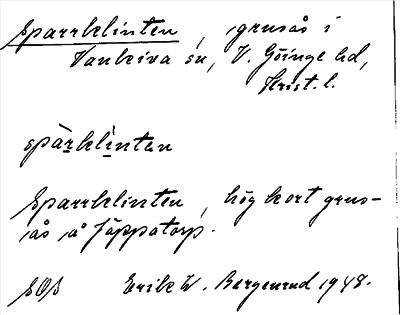 Sparrklinten, grusås i
Vankiva sn, V. Göinge hd,
Krist. l.
spàrklìntən
Sparrklinten, hög kort grus-
ås å Jäppatorp.
SOÅ Erik W. Bergenrud 1948.